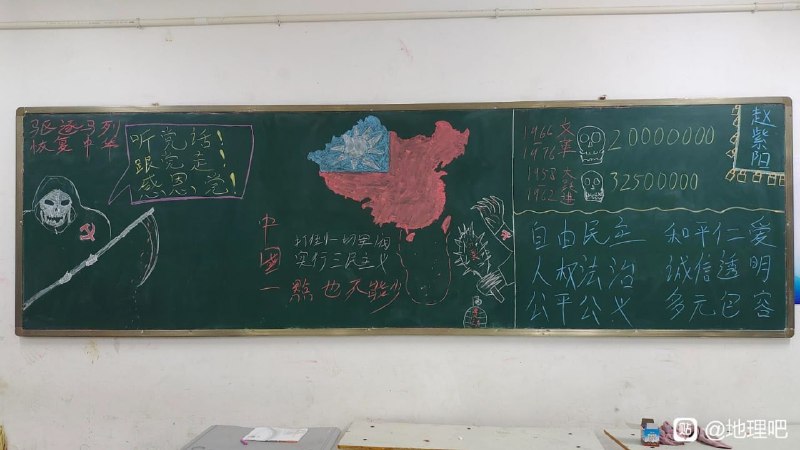 驱逐马列
恢复中华
听党话!
跟党走!
感恩党!
中
國
一點也不能少
打倒一切
实行三民主义
1966
1976
文革
20000000
1958
1962
大跃进
32500000
赵紫阳
自由民主 和平仁爱
人权法治 诚信透明
公平公义 多元包容
贴 @地理吧